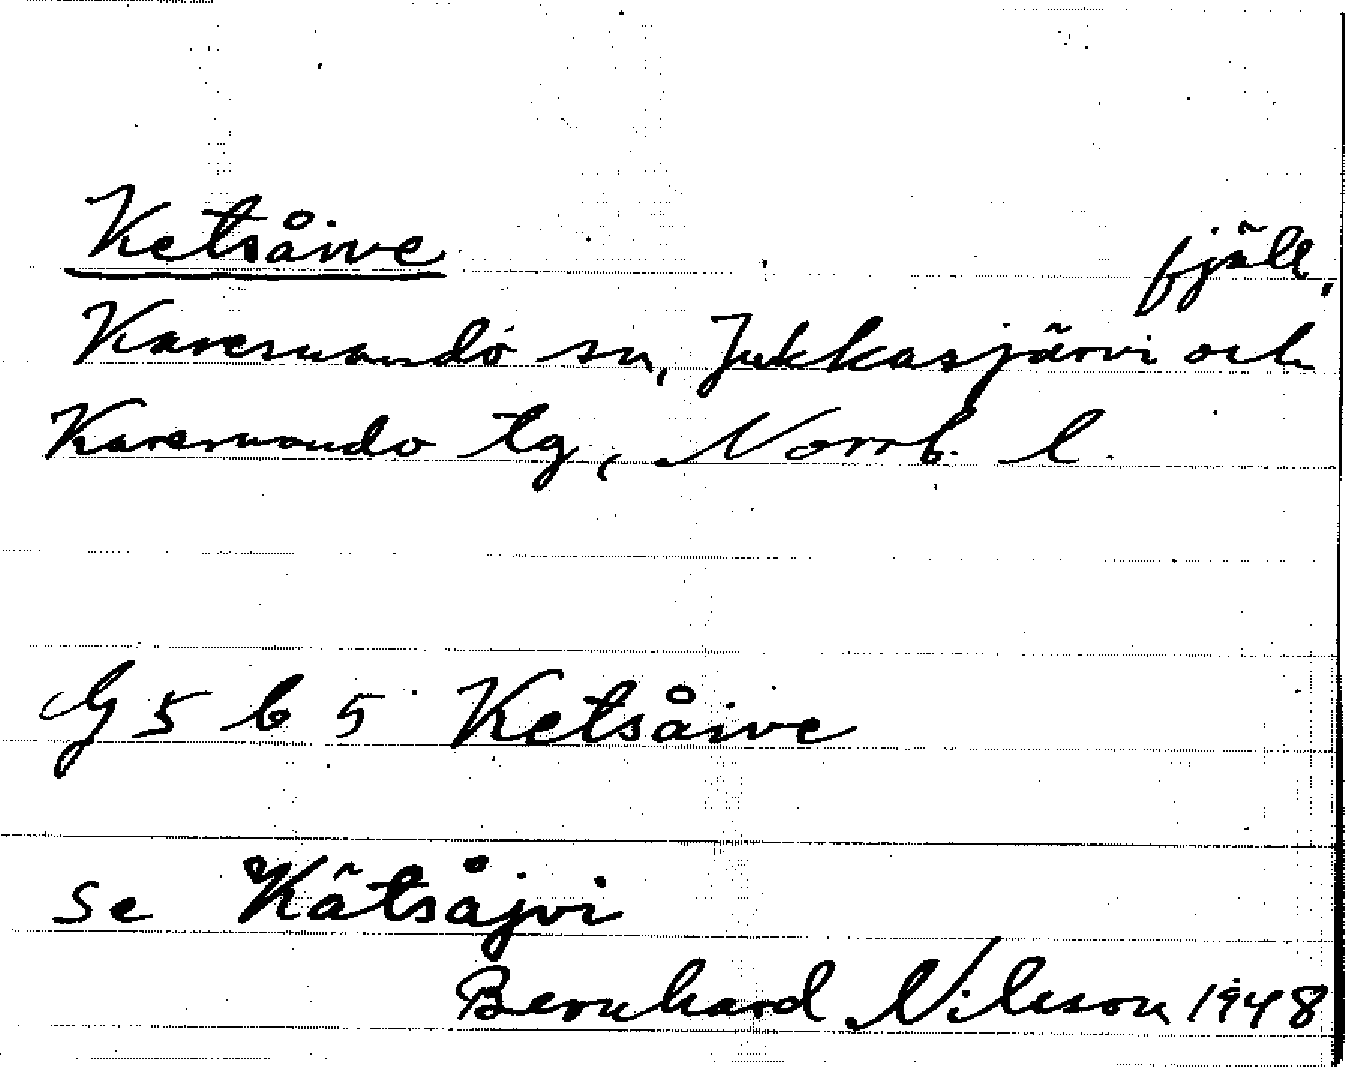 Ketsåive fjäll,
Karesuando sn, Jukkasjärvi och
Karesuando tg, Norrb. l.
G 5 b 5 Ketsåive
se Kätsåjvi
Bernhard Nilsson 1948